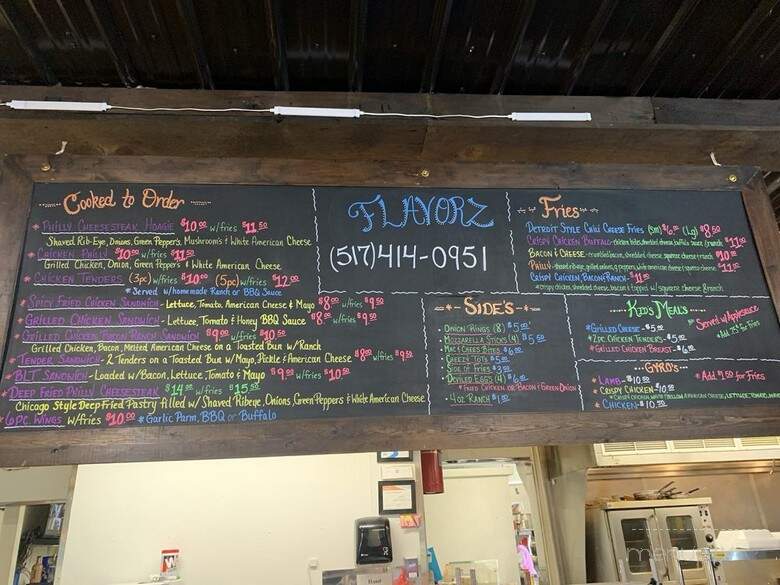 Cooked to Order
* Philly Cheesesteak Hoagie $10.00 w/fries $11.50
Shaved Rib-Eye, Onions, Green Peppers, Mushroom's & White American Cheese
* Chicken Philly $10.00 w/fries $11.50
Grilled Chicken, Onion, Green Peppers & White American Cheese
* Chicken Tenders (3pc) w/fries $10.00 (5pc) w/fries $12.00
* Served w/homemade Ranch or BBQ Sauce
* Spicy Fried Chicken Sandwich - Lettuce, Tomato, American Cheese & Mayo $8.00 w/fries $9.50
* Grilled Chicken Sandwich - Lettuce, Tomato & Honey BBQ Sauce $8.00 w/fries $9.50
* Grilled Chicken Bacon Ranch Sandwich $9.00 w/fries $10.50
Grilled Chicken, Bacon, Melted American Cheese on a Toasted Bun w/Ranch
* Tender Sandwich - 2 Tenders on a Toasted Bun w/Mayo, Pickle & American Cheese $8.00 w/fries $9.50
* BLT Sandwich - Loaded w/Bacon, Lettuce, Tomato & Mayo $9.00 w/fries $10.50
* Deep Fried Philly Cheesesteak $14.00 w/fries $15.50
Chicago Style Deep Fried Pastry filled w/ Shaved Ribeye, Onions, Green Peppers & White American Cheese
* 6pc. Wings w/fries $10.00 * Garlic Parm, BBQ or Buffalo
FLAVORZ
(517)414-0951
Side's
* Onion Rings (8) $5.00
* Mozzarella Sticks (4) $5.50
* Mac & Chees Bites $6.00
* Cheese
* Side of Fries $3.00
* Deviled Eggs (4) $6.00
* Fried Chicken or Bacon & Green Onion
* 4oz Ranch $1.00
Fries
Detroit Style Chili Cheese Fries (Sm) $6.00 (Lg) $8.50
Crispy Chicken Buffalo - chicken bites, shredded cheese, buffalo sauce, ranch $11.00
Bacon & Cheese - crumbled bacon, shredded cheese, squeeze ranch $10.00
Philly - shaved ribeye, grilled onions, g. peppers, white american cheese $11.00
Crispy Chicken Bacon Ranch - $11.00
* crispy chicken, shredded cheese, bacon, topped w/ squeeze cheese & ranch
Kid's Meals
* Served w/ Applesauce
* Grilled Cheese - $5.00
* 2pc. Chicken Tenders - $5.00
* Grilled Chicken Breast - $6.00
* Add .75¢ for Fries
Gyro's
* Lamb - $10.00
* Add $1.50 for Fries
* Crispy Chicken - $10.00
* Chicken - $10.50